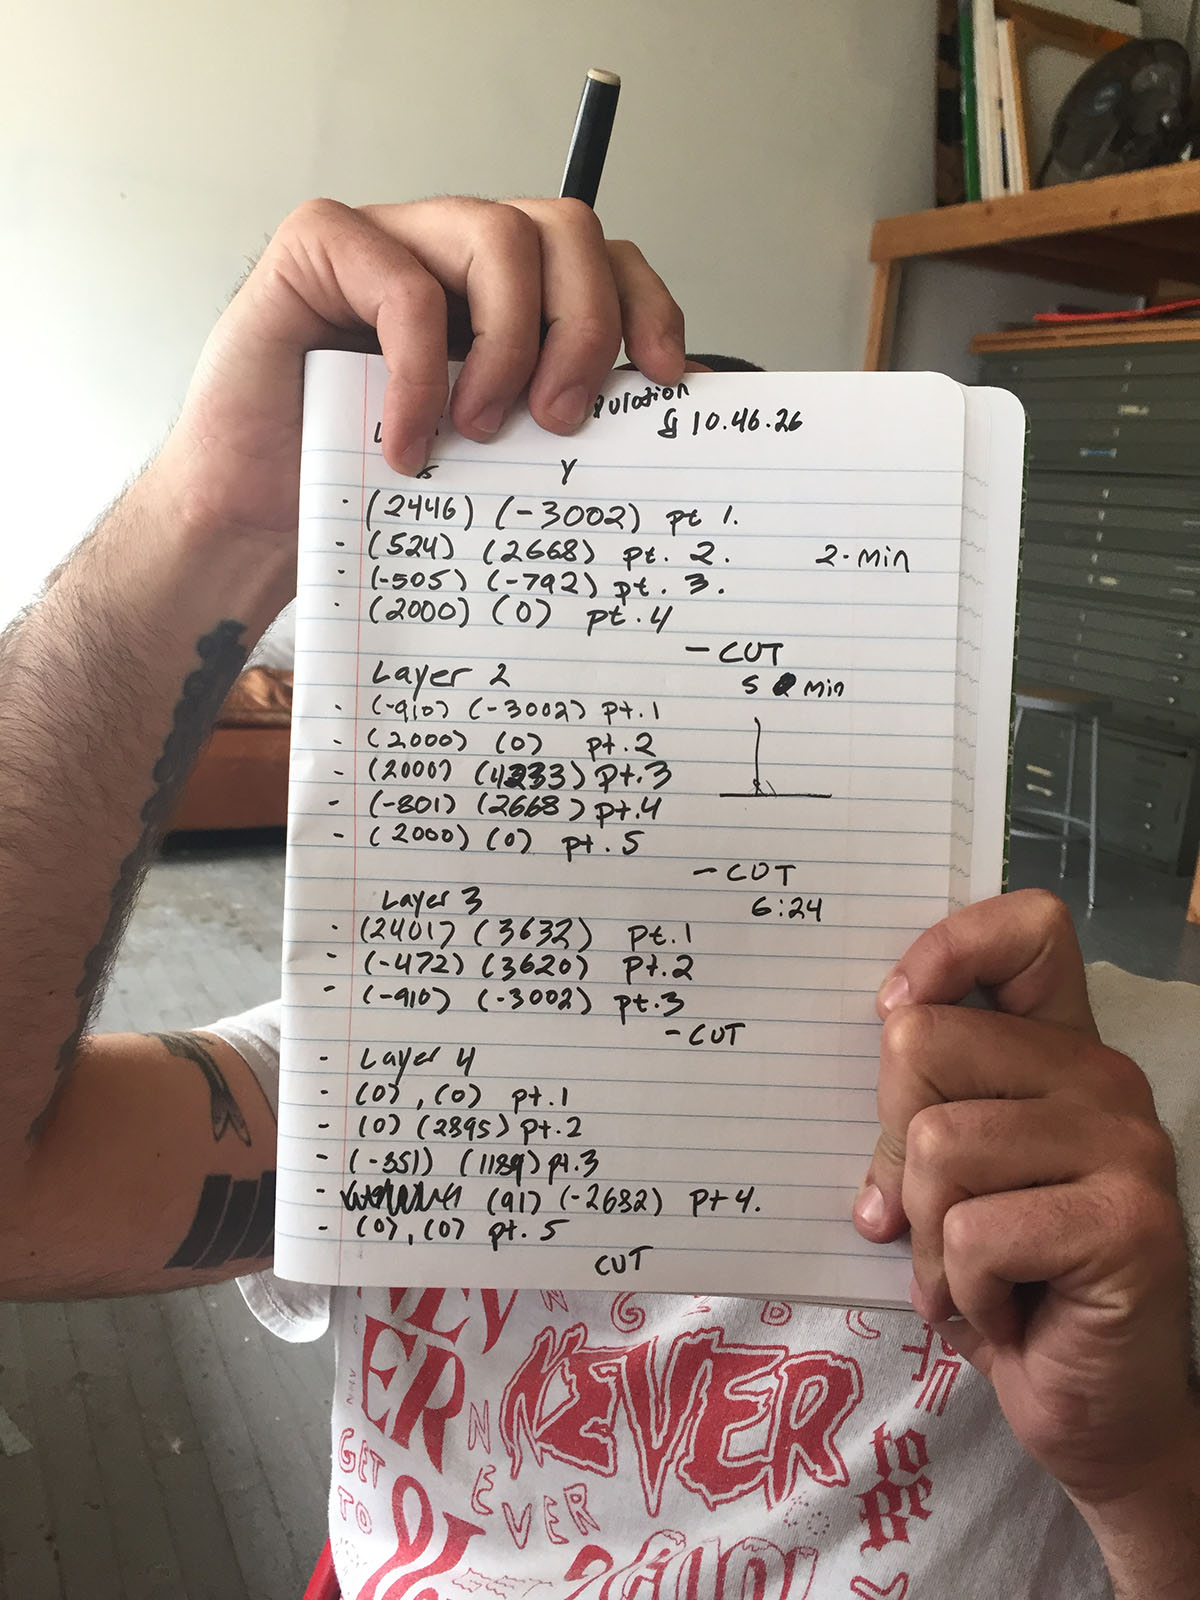 10.46.26
Y
- (2446) (-3002) pt 1.
- (524) (2668) pt. 2. 2-Min
- (-505) (-792) pt. 3.
- (2000) (0) pt.4
- CUT
Layer 2 5 Min
- (-910) (-3002) Pt.1
- (2000) (0) pt.2
- (2000) (4233) Pt.3
- (-801) (2668) Pt.4
- (2000) (0) pt. 5
- CUT
Layer 3 6:24
- (2401) (3632) Pt.1
- (-472) (3620) Pt.2
- (-910) (-3002) pt.3
- CUT
- Layer 4
- (0), (0) pt.1
- (0) (2895) pt.2
- (-351) (1189) pt.3
- (91) (-2682) Pt 4.
- (0), (0) pt. 5
CUT
NEVER
GET
TO
NEVER
to
Be